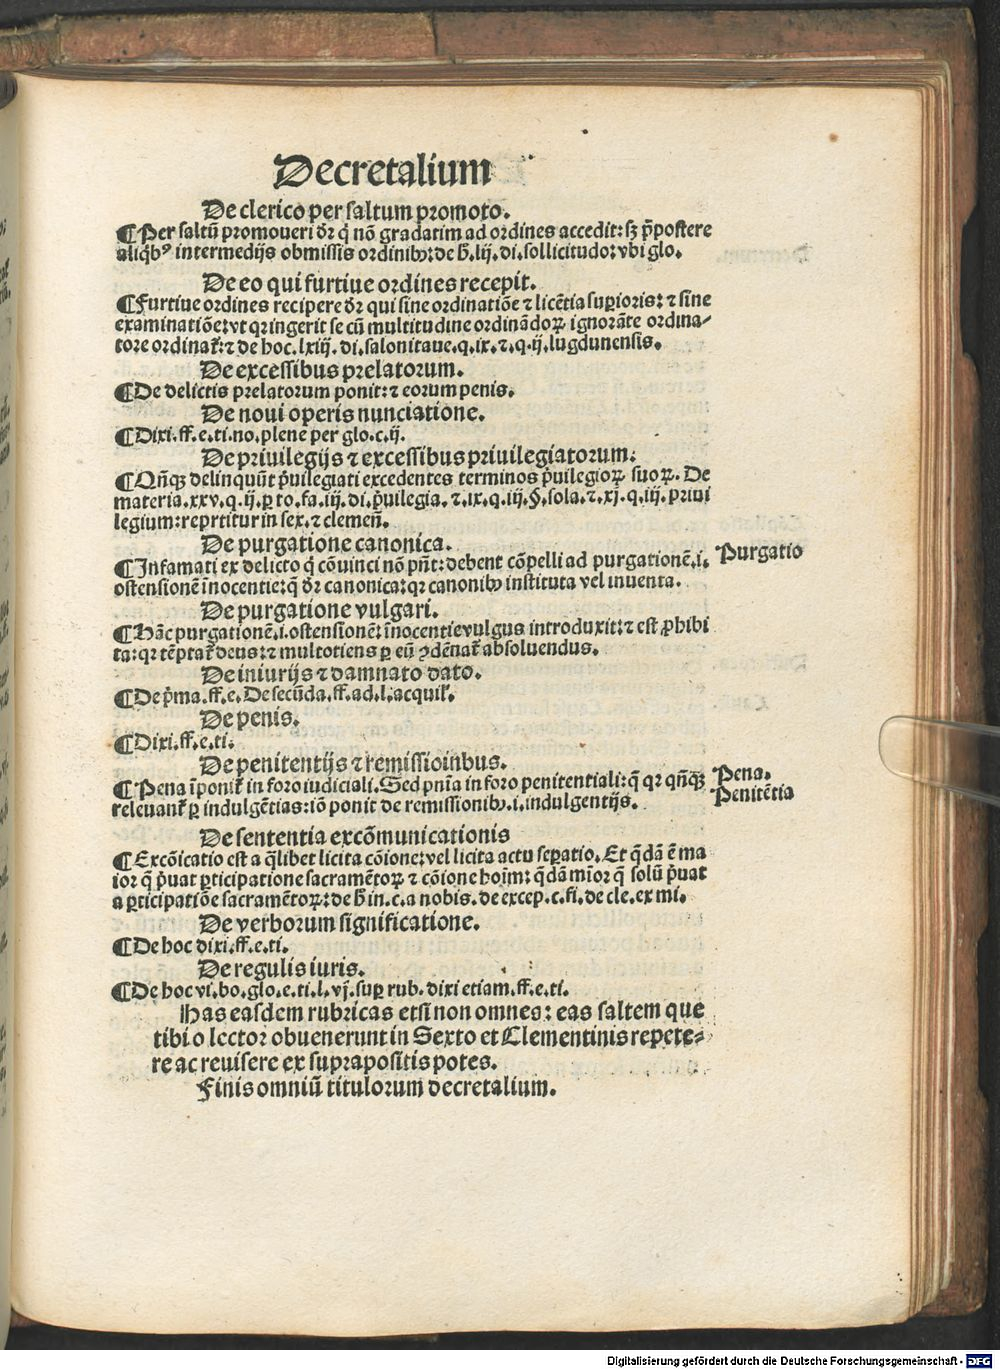 Decretalium
De clerico per saltum promoto.
¶Per saltū promoueri dr̄ q̄ nō gradatim ad ordines accedit: sꝫ p̄postere
aliq̄bꝰ intermedijs obmissis ordinibꝰ: de h̄. lij. di. sollicitudo: vbi glo.
De eo qui furtiue ordines recepit.
¶Furtiue ordines recipere dr̄ qui sine ordinatiōe ⁊ licētia superioris: ⁊ sine
examinatiōe: vt qr ingerit se cū multitudine ordinādoꝝ ignorāte ordina⸗
tore ordinat̄: ⁊ de hoc. lxiij. di. salonitaue. q. ix. ⁊. q. ij. lugdunensis.
De excessibus prelatorum.
¶De delictis prelatorum ponit: ⁊ eorum penis.
De noui operis nunciatione.
¶Dixi. ff. e. ti. no. plene per glo. c. ij.
De priuilegijs ⁊ excessibus priuilegiatorum.
¶Qn̄qꝫ delinquūt p̄uilegiati excedentes terminos p̄uilegioꝝ suoꝝ. De
materia. xxv. q. ij. ꝑ to. fa. iij. di. p̄uilegia. ⁊. ix. q. iij. §. sola. ⁊. xj. q. iij. priui
legium: reprtitur in sex. ⁊ clemen̄.
De purgatione canonica.
¶Infamati ex delicto q̄ cōuinci nō pn̄t: debent cōpelli ad purgationē. i.
Purgatio
ostensionē īnocentie: q̄ dr̄ canonica: qr canonibꝰ instituta vel inuenta.
De purgatione vulgari.
¶Hāc purgationē. i. ostensionē: īnocentie vulgus introduxit: ⁊ est ꝓhibi
ta: qr tēptat̄ deus: ⁊ multotiens ꝑ eū ꝯdēnat̄ absoluendus.
De iniurijs ⁊ damnato dato.
¶De p̄ma. ff. e. De secūda. ff. ad. l. acquil̄.
De penis.
¶Dixi. ff. e. ti.
De penitentijs ⁊ remissioinbus.
¶Pena īponit̄ in foro iudiciali. Sed pn̄ia in foro penitentiali: q̄ qr qn̄qꝫ
Pena.
Penitētia
releuant̄ ꝑ indulgētias: iō ponit de remissionibꝰ. i. indulgentijs.
De sententia excōmunicationis
¶Excōicatio est a q̄libet licita cōione: vel licita actu seꝑatio. Et q̄dā ē ma
ior q̄ p̄uat ꝑticipatione sacramētoꝝ ⁊ cōione hoīm: q̄dā mīor q̄ solū p̄uat
a ꝑticipatiōe sacramētoꝝ: de h̄ in. c. a nobis. de excep. c. fi. de cle. ex mi.
De verborum significatione.
¶De hoc dixi. ff. e. ti.
De regulis iuris.
¶De hoc vi. bo. glo. e. ti. l. vj. suꝑ rub. dixi etiam. ff. e. ti.
Has easdem rubricas etsi non omnes: eas saltem que
tibi o lector obuenerunt in Sexto et Clementinis repete⸗
re ac reuisere ex suprapositis potes.
Finis omniū titulorum decretalium.
Digitalisierung gefördert durch die Deutsche Forschungsgemeinschaft - DFG